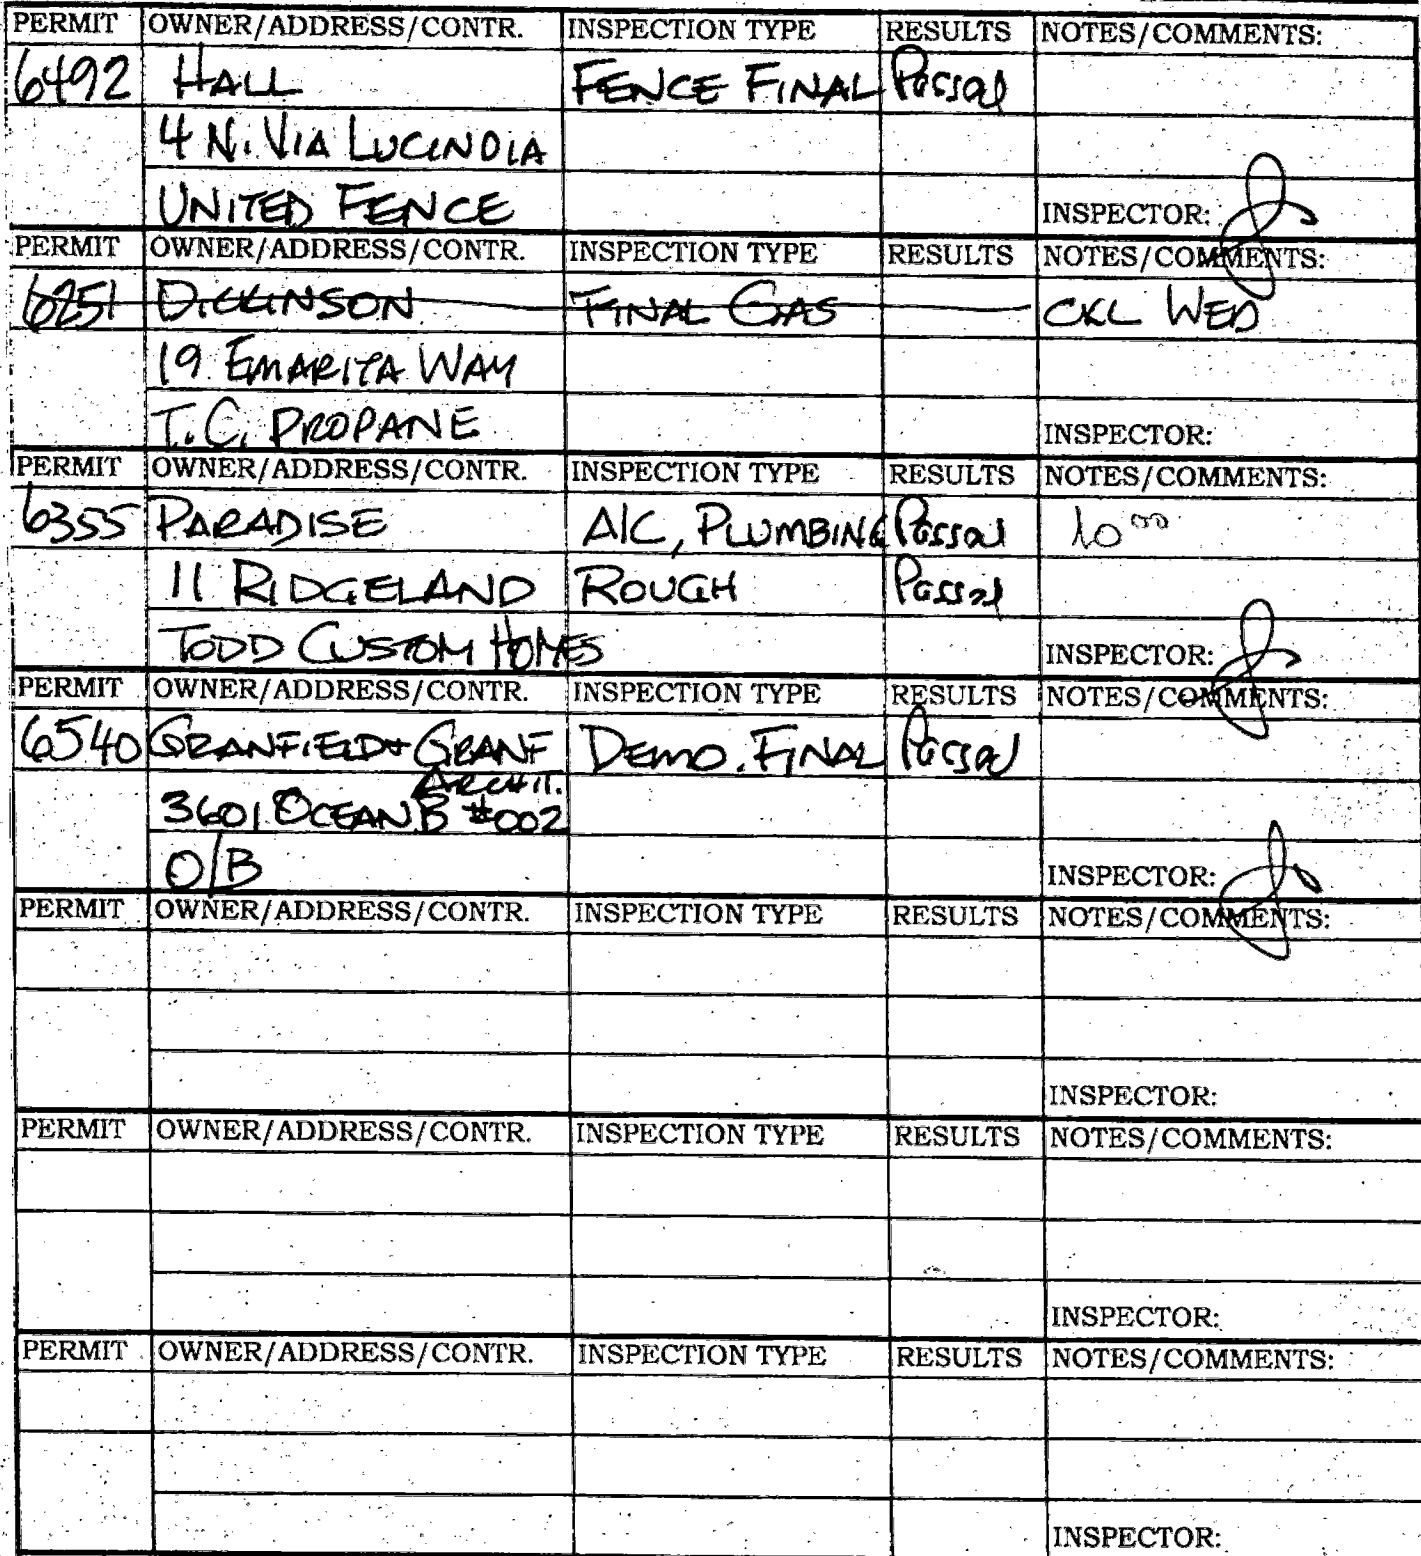 PERMIT OWNER/ADDRESS/CONTR. INSPECTION TYPE RESULTS NOTES/COMMENTS:
6492 HALL FENCE FINAL Passed
4 N. VIA LUCINDIA
UNITED FENCE INSPECTOR:
PERMIT OWNER/ADDRESS/CONTR. INSPECTION TYPE RESULTS NOTES/COMMENTS:
6251 DICKINSON FINAL GAS WED
19 EMARITA WAY
T.C. PROPANE INSPECTOR:
PERMIT OWNER/ADDRESS/CONTR. INSPECTION TYPE RESULTS NOTES/COMMENTS:
6355 PARADISE A/C, PLUMBING Passed 10 00
11 RIDGELAND ROUGH Passed
TODD CUSTOM HOMES INSPECTOR:
PERMIT OWNER/ADDRESS/CONTR. INSPECTION TYPE RESULTS NOTES/COMMENTS:
6540 GRANFIELD + GRANF DEMO. FINAL Passed
ARCHIT.
3601 OCEAN B #002
O/B INSPECTOR:
PERMIT OWNER/ADDRESS/CONTR. INSPECTION TYPE RESULTS NOTES/COMMENTS:
INSPECTOR:
PERMIT OWNER/ADDRESS/CONTR. INSPECTION TYPE RESULTS NOTES/COMMENTS:
INSPECTOR:
PERMIT OWNER/ADDRESS/CONTR. INSPECTION TYPE RESULTS NOTES/COMMENTS:
INSPECTOR: